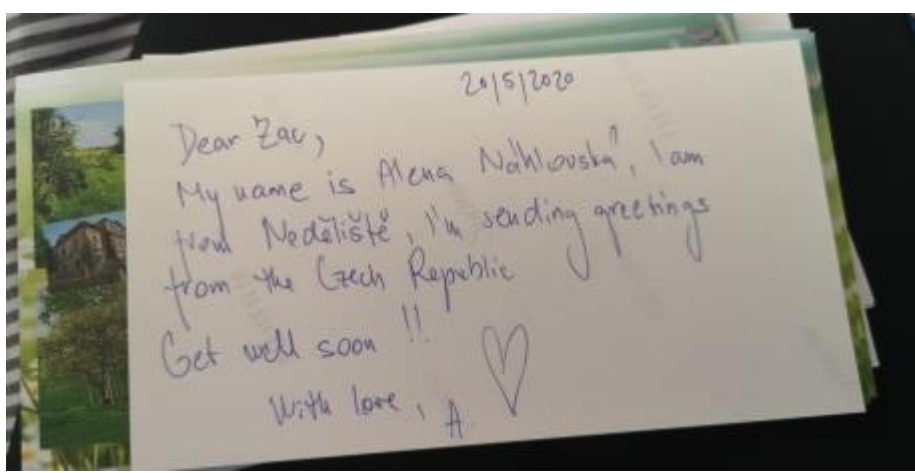 20/5/2020
Dear Zac,
My name is Alena Náhlovská, I am
from Neděliště, I'm sending greetings
from the Czech Republic
Get well soon !!
With love, A.